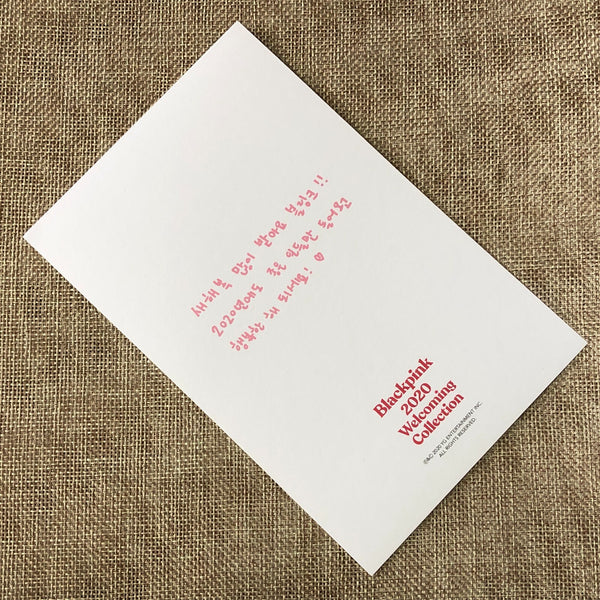 새해 복 많이 받아요 블링크!!
2020년에도 좋은 일들만 들어온
행복한 해 되세요! ♡
Blackpink
2020
Welcoming
Collection
Ⓟ&© 2020 YG ENTERTAINMENT INC.
ALL RIGHTS RESERVED.